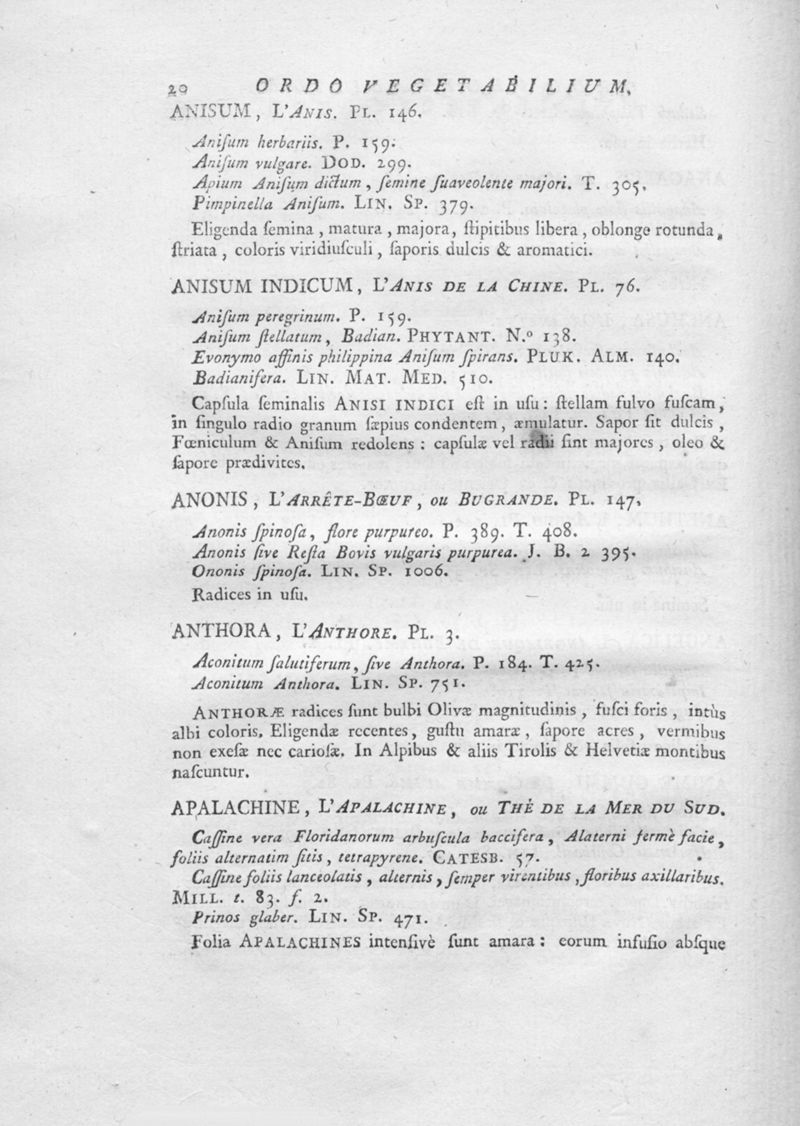 20 ORDO VEGETABILIUM.
ANISUM, L'ANIS. PL. 146.
Aniſum herbariis. P. 159.
Aniſum vulgare. DOD. 299.
Apium Aniſum dictum, ſemine ſuaveolente majori. T. 305.
Pimpinella Aniſum. LIN. SP. 379.
Eligenda ſemina, matura, majora, ſtipitibus libera, oblonge rotunda,
ſtriata, coloris viridiuſculi, ſaporis dulcis & aromatici.
ANISUM INDICUM, L'ANIS DE LA CHINE. PL. 76.
Aniſum peregrinum. P. 159.
Aniſum ſtellatum, Badian. PHYTANT. N.º 138.
Evonymo affinis philippina Aniſum ſpirans. PLUK. ALM. 140.
Badianifera. LIN. MAT. MED. 510.
Capſula ſeminalis ANISI INDICI eſt in uſu: ſtellam fulvo fuſcam,
in ſingulo radio granum ſæpius condentem, æmulatur. Sapor ſit dulcis,
Fœniculum & Aniſum redolens: capſulæ vel radii ſint majores, oleo &
ſapore prædivites.
ANONIS, L'ARRÊTE-BŒUF, ou BUGRANDE. PL. 147.
Anonis ſpinoſa, flore purpureo. P. 389. T. 408.
Anonis ſive Reſta Bovis vulgaris purpurea. J. B. 2 395.
Ononis ſpinoſa. LIN. SP. 1006.
Radices in uſu.
ANTHORA, L'ANTHORE. PL. 3.
Aconitum ſalutiferum, ſive Anthora. P. 184. T. 425.
Aconitum Anthora. LIN. SP. 751.
ANTHORÆ radices ſunt bulbi Olivæ magnitudinis, fuſci foris, intùs
albi coloris. Eligendæ recentes, guſtu amaræ, ſapore acres, vermibus
non exeſæ nec carioſæ. In Alpibus & aliis Tirolis & Helvetiæ montibus
naſcuntur.
APALACHINE, L'APALACHINE, ou THÉ DE LA MER DU SUD.
Caſſine vera Floridanorum arbuſcula baccifera, Alaterni fermè facie,
foliis alternatim ſitis, tetrapyrene. CATESB. 57.
Caſſine foliis lanceolatis, alternis, ſemper virentibus, floribus axillaribus.
MILL. t. 83. f. 2.
Prinos glaber. LIN. SP. 471.
Folia APALACHINES intenſivè ſunt amara: eorum infuſio abſque